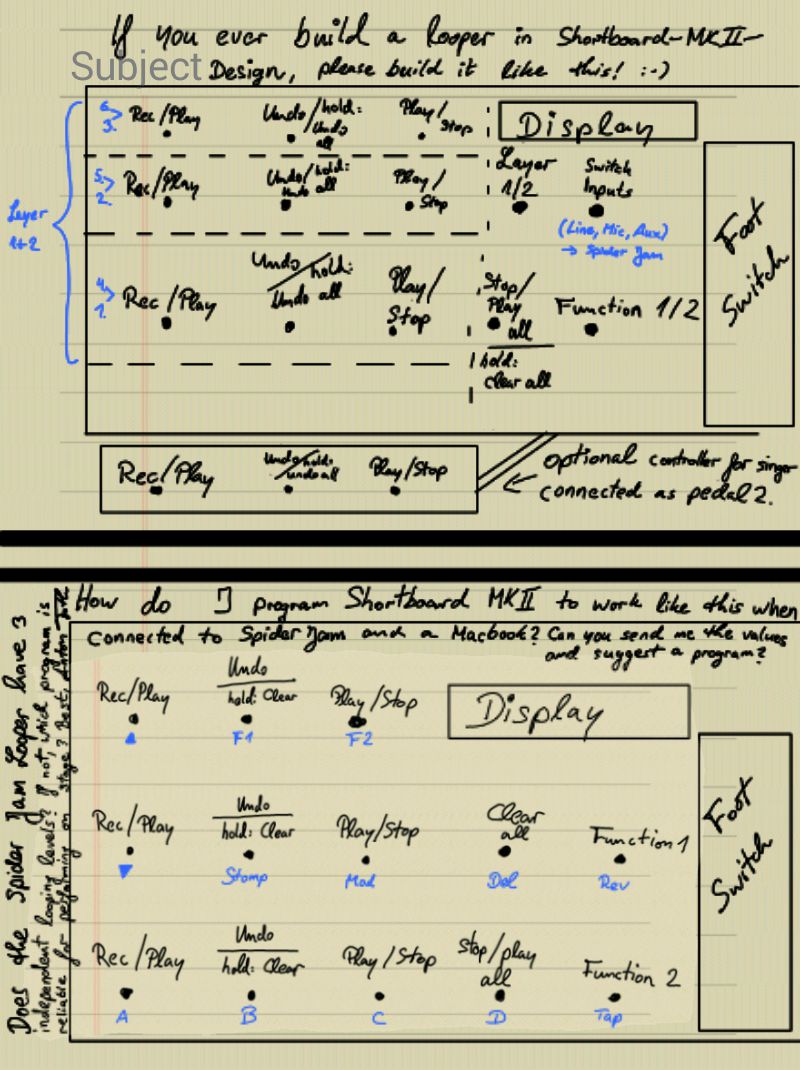 If you ever build a looper in Shortboard-MKII-
Subject
Design, please build it like this! :-)
6.
3.
Rec/Play
Undo/hold:
Undo
all
Play/
Stop
Display
5.
2.
Rec/Play
Undo/hold:
Undo all
Play/
Stop
Layer
1/2
Switch
Inputs
(Line, Mic, Aux)
→ Spider Jam
Layer
1+2
4.
1.
Rec/Play
Undo/hold:
Undo all
Play/
Stop
Stop/
Play
all
hold:
Clear all
Function 1/2
Foot
Switch
Rec/Play
Undo/hold:
undo all
Play/Stop
optional controller for singer
connected as pedal 2.
How do I program Shortboard MKII to work like this when
connected to Spider Jam and a Macbook? Can you send me the values
and suggest a program?
Does the Spider Jam Looper have 3
independent looping levels? If not, which program is
reliable for performing on stage? Best,
Rec/Play
Undo
hold: Clear
Play/Stop
Display
▲
F1
F2
Rec/Play
Undo
hold: Clear
Play/Stop
Clear
all
Function 1
▼
Stomp
Mod
Del
Rev
Foot
Switch
Rec/Play
Undo
hold: Clear
Play/Stop
Stop/play
all
Function 2
A
B
C
D
Tap